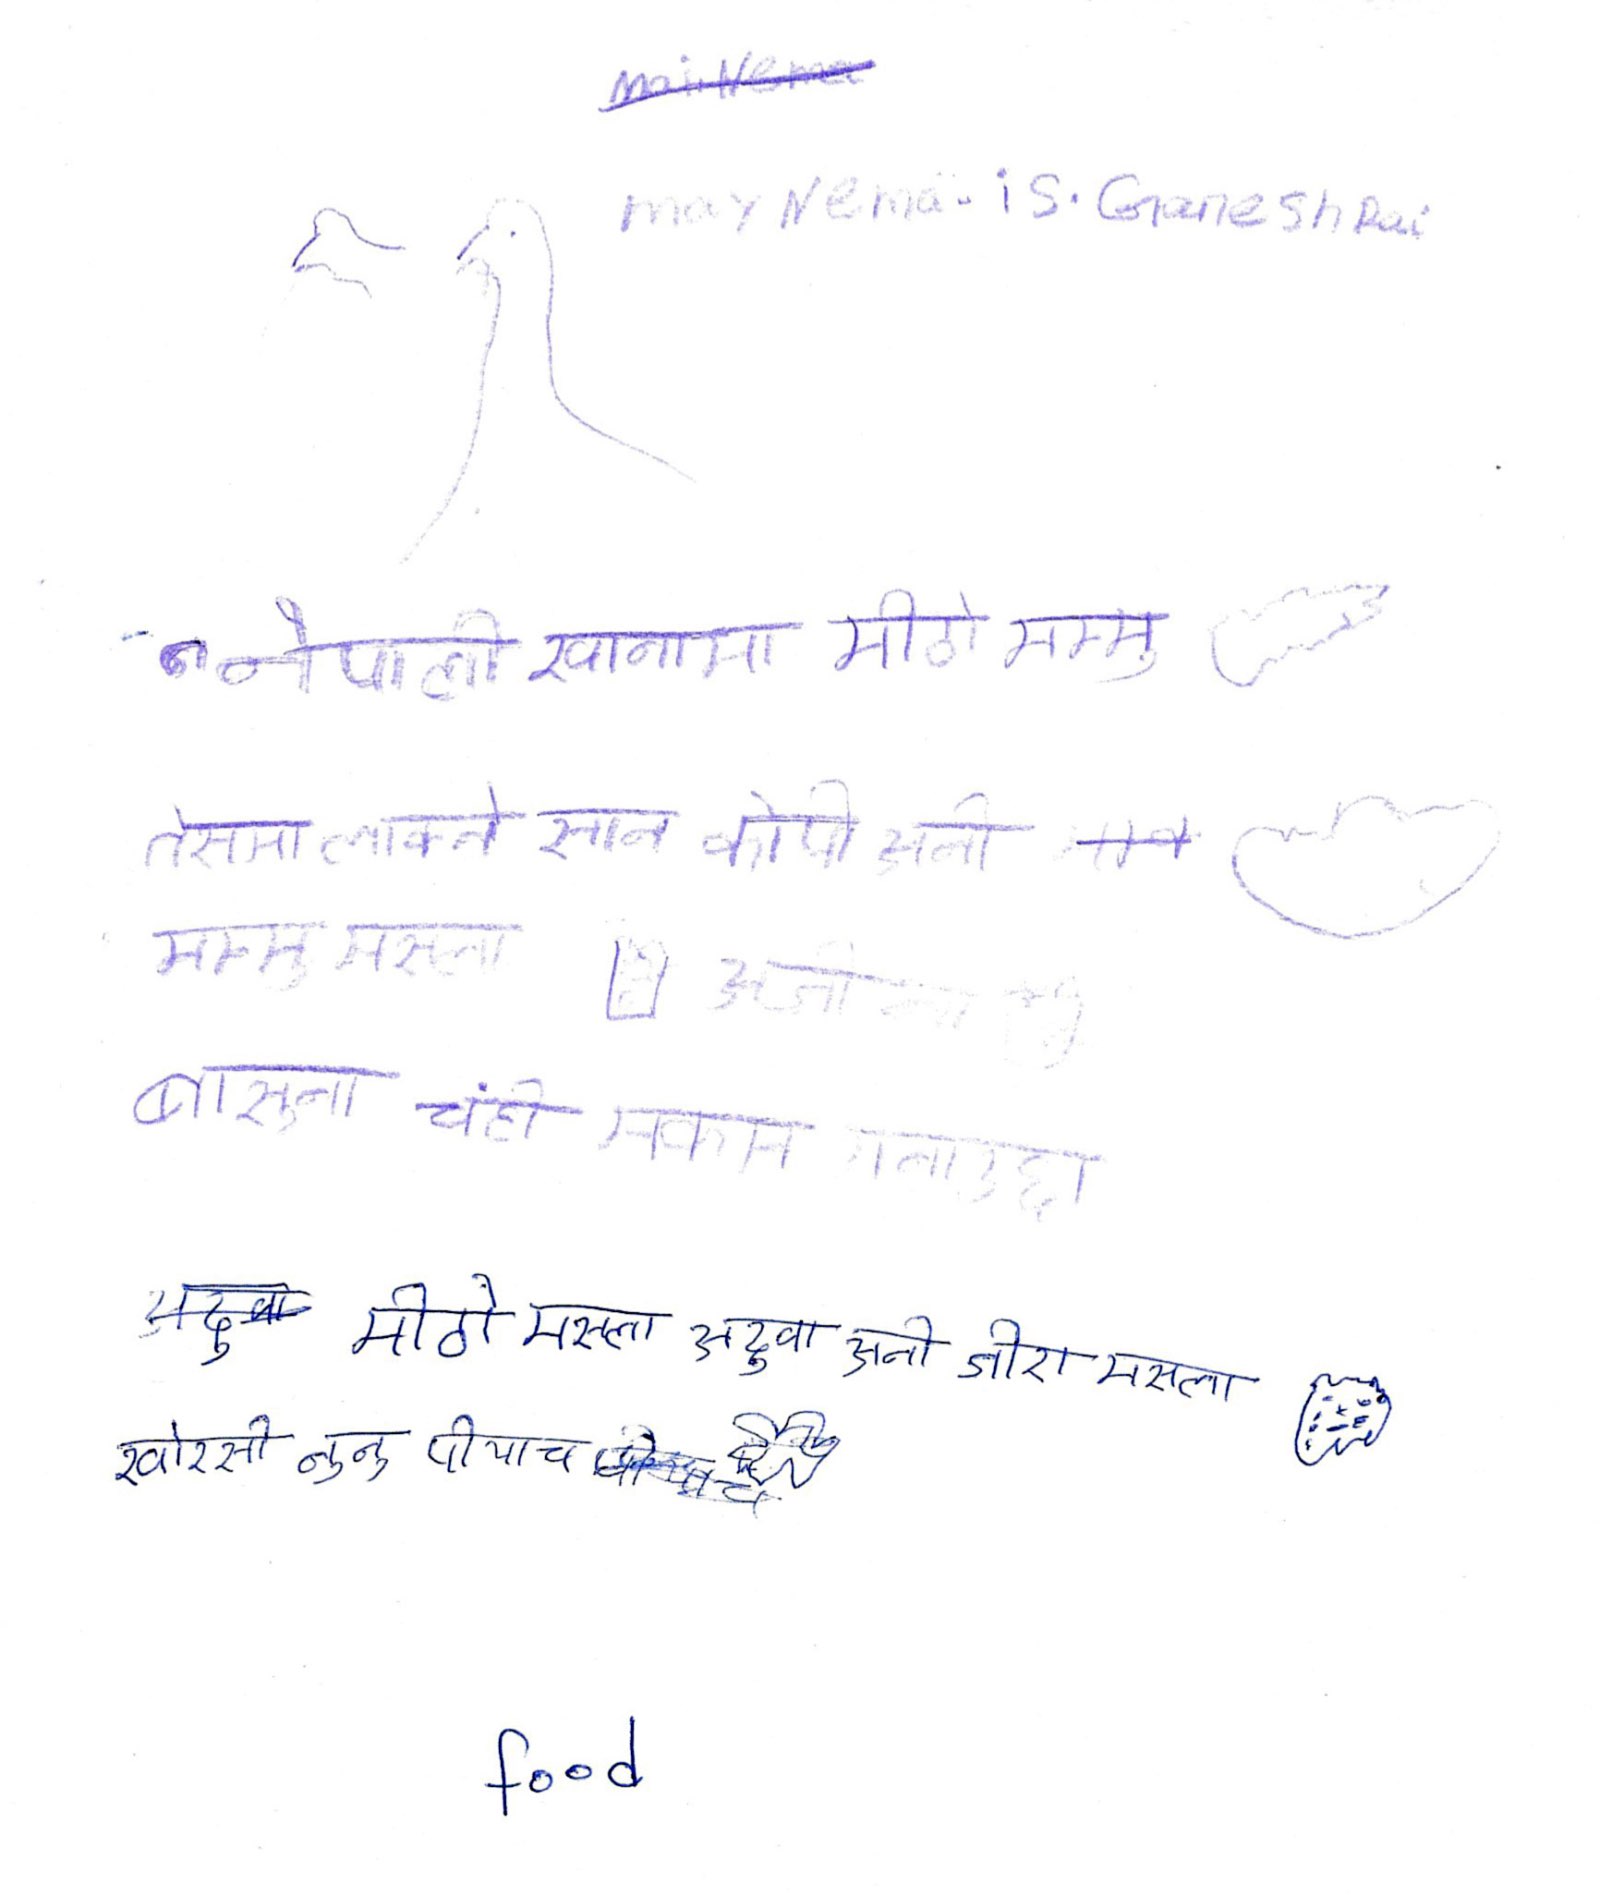 may Nema. is. Ganesh Rai
नेपाली खानामा मीठो मम्मु
तेसमा लाक्ने सान कोपी अनी
मम्मु मसला अनी
बासुना चंही मकान बनाउदा
मीठो मसला अदुवा अनी जीरा मसला
खोरसी नुनु पीयाच
food